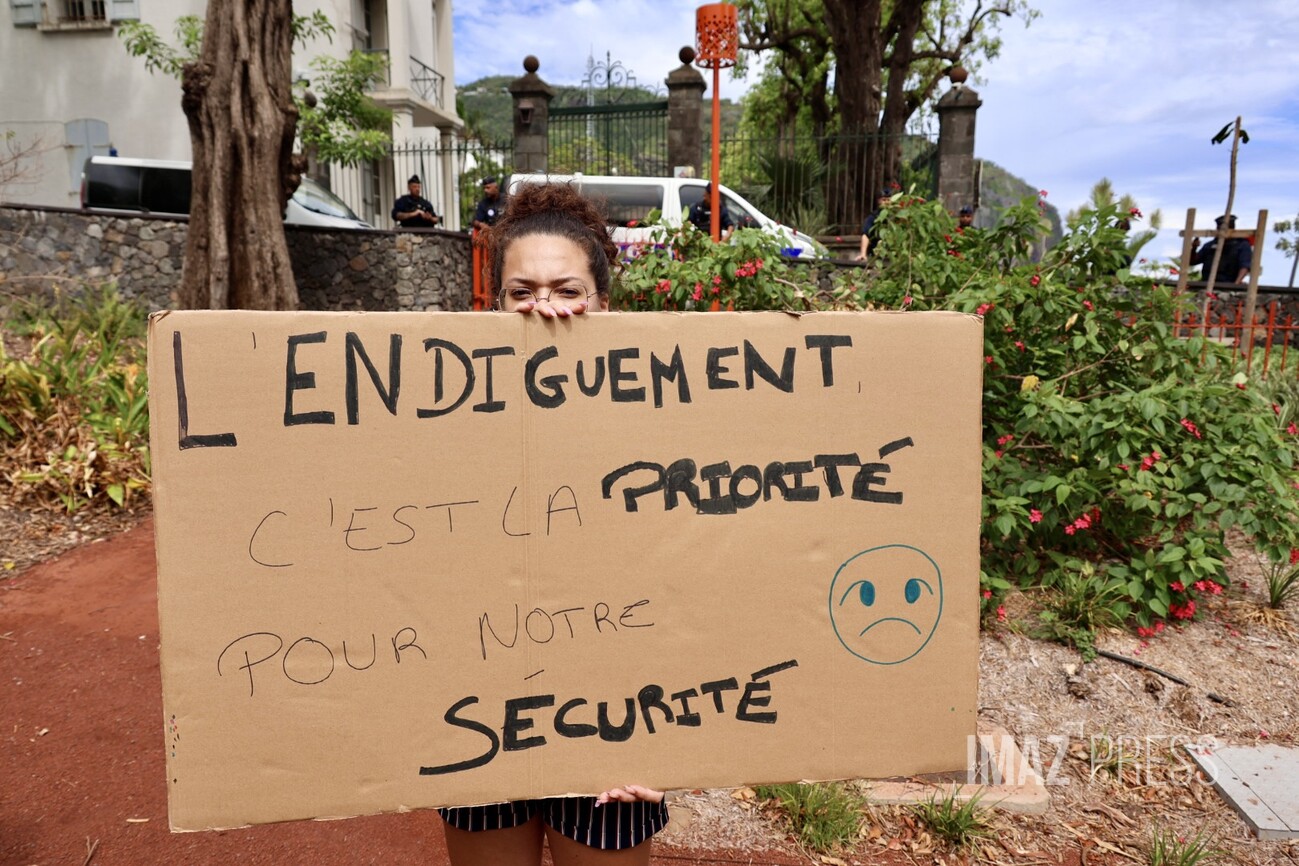 L'ENDIGUEMENT,
C'EST LA PRIORITÉ
POUR NOTRE
SÉCURITÉ
IMAZ PRESS